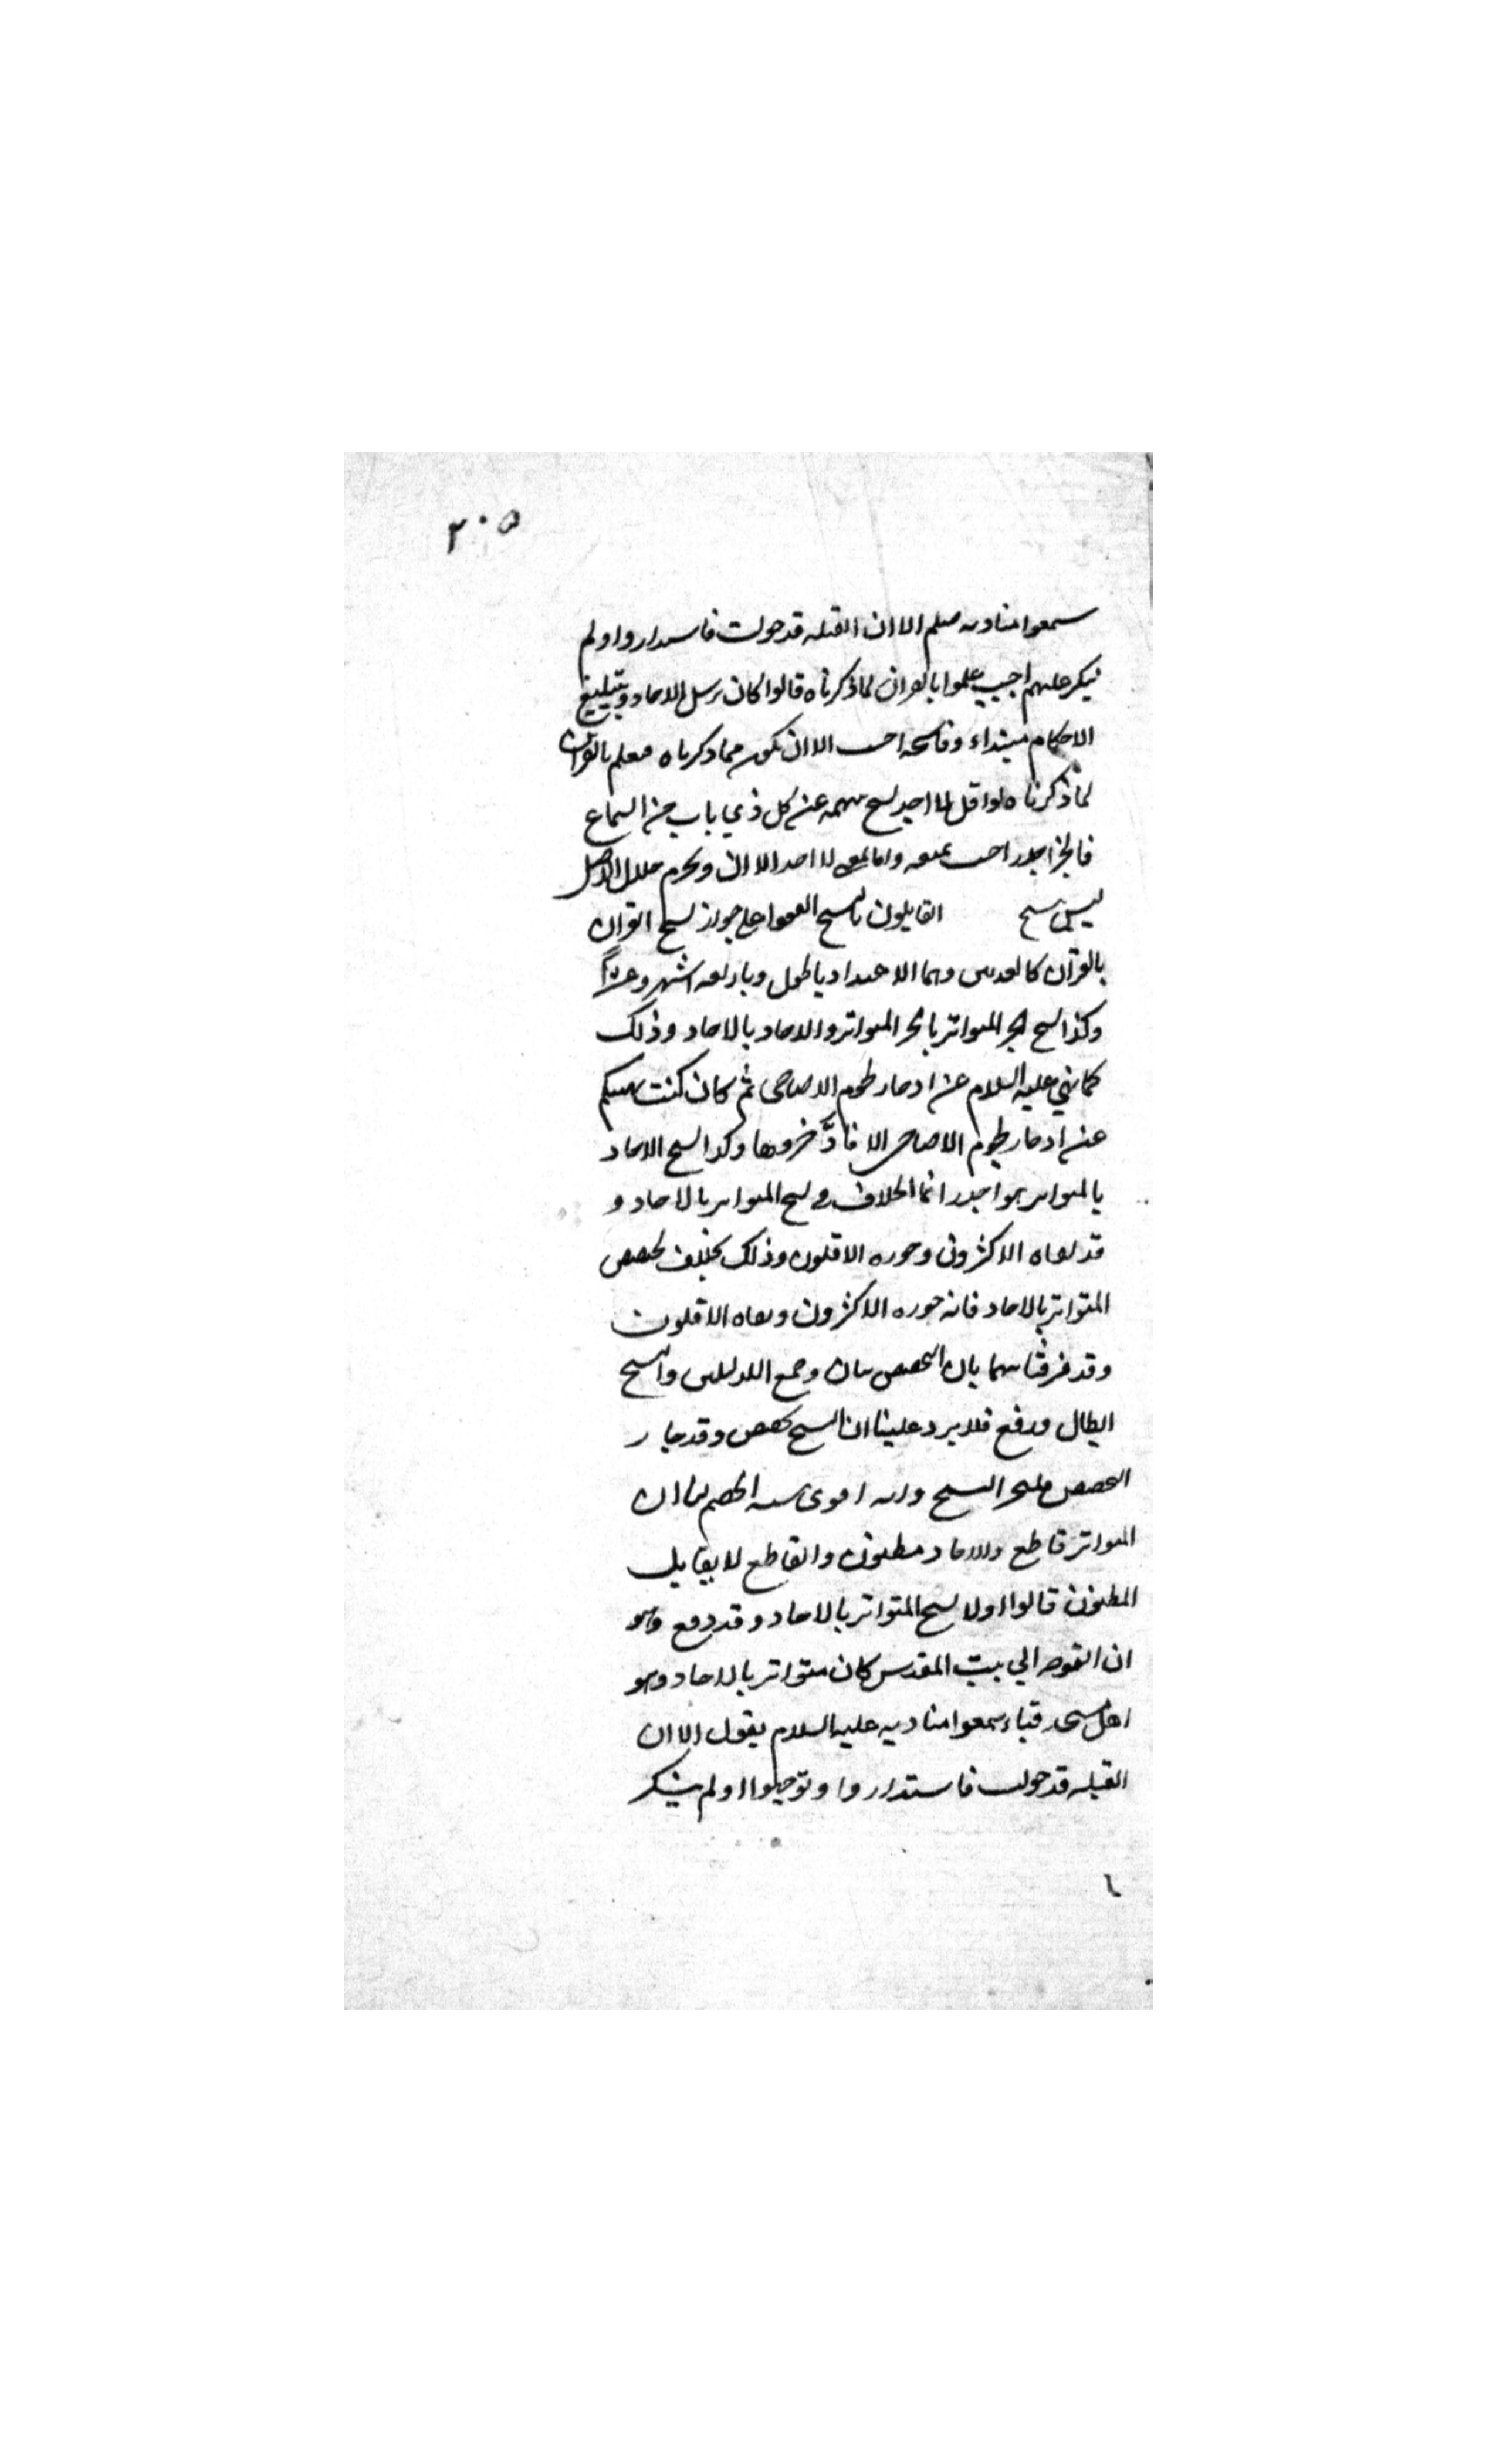 ٢٠٥
سمعوا مناديه صلعم الا ان القبله قد حولت فاستداروا ولم
ينكر عليهم اجيب علموا بالقران لما ذكرناه قالوا كان يرسل الاحاد وبتبليغ
الاحكام مبتداء وناسخه اجيب الا ان يكون مما ذكرناه فيعلم بالقران
لما ذكرناه قالوا قل لا اجد نسخ نهيه عن كل ذي ناب من السباع
فالخبر اجدر اجيب بمنعه واما لا اجد الا ان وتحريم حلال الاصل
ليس بنسخ القايلون بالنسخ اتفقوا على جواز نسخ القران
بالقرآن كالعدتين وهما الاعتداد باطول وباربعه اشهر وعشراً
وكذا نسخ الخبر المتواتر بالخبر المتواتر والاحاد بالاحاد وذلك
كما نهي عليه السلام عن ادخار لحوم الاضاحي ثم كان كنت نهيتكم
عن ادخار لحوم الاضاحي الا فادَّخروها وكذا نسخ الاحاد
بالمتواتر هو اجدر انما الخلاف في نسخ المتواتر بالاحاد و
قد نفاه الاكثرون وجوزه الاقلون وذلك بخلاف تخصيص
المتواتر بالاحاد فانه جوزه الاكثرون ونفاه الاقلون
وقد فرقنا بينهما بان التخصيص بيان وجمع الدليلين والنسخ
ابطال ورفع فلا يرد علينا ان النسخ تخصيص وقد جاز
التخصيص فليجز النسخ وانه اقوى شبه الخصم لنا ان
المتواتر قاطع والاحاد مظنون والقاطع لا يقابل
المظنون قالوا اولا نسخ المتواتر بالاحاد وقد وقع وهو
ان التوجه الي بيت المقدس كان متواتر بالاحاد وهو
اهل مسجد قباء سمعوا مناديه عليه السلام يقول الا ان
القبله قد حولت فاستداروا وتوجهوا ولم ينكر